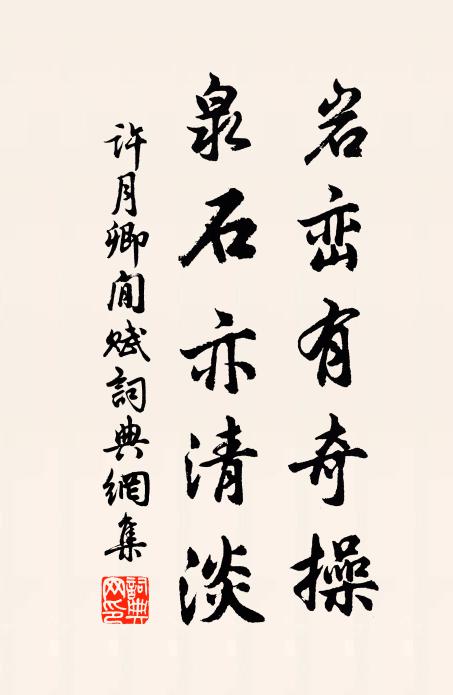 岩峦有奇操
泉石亦清淡
许月卿閒赋詞典網集
詞典網印